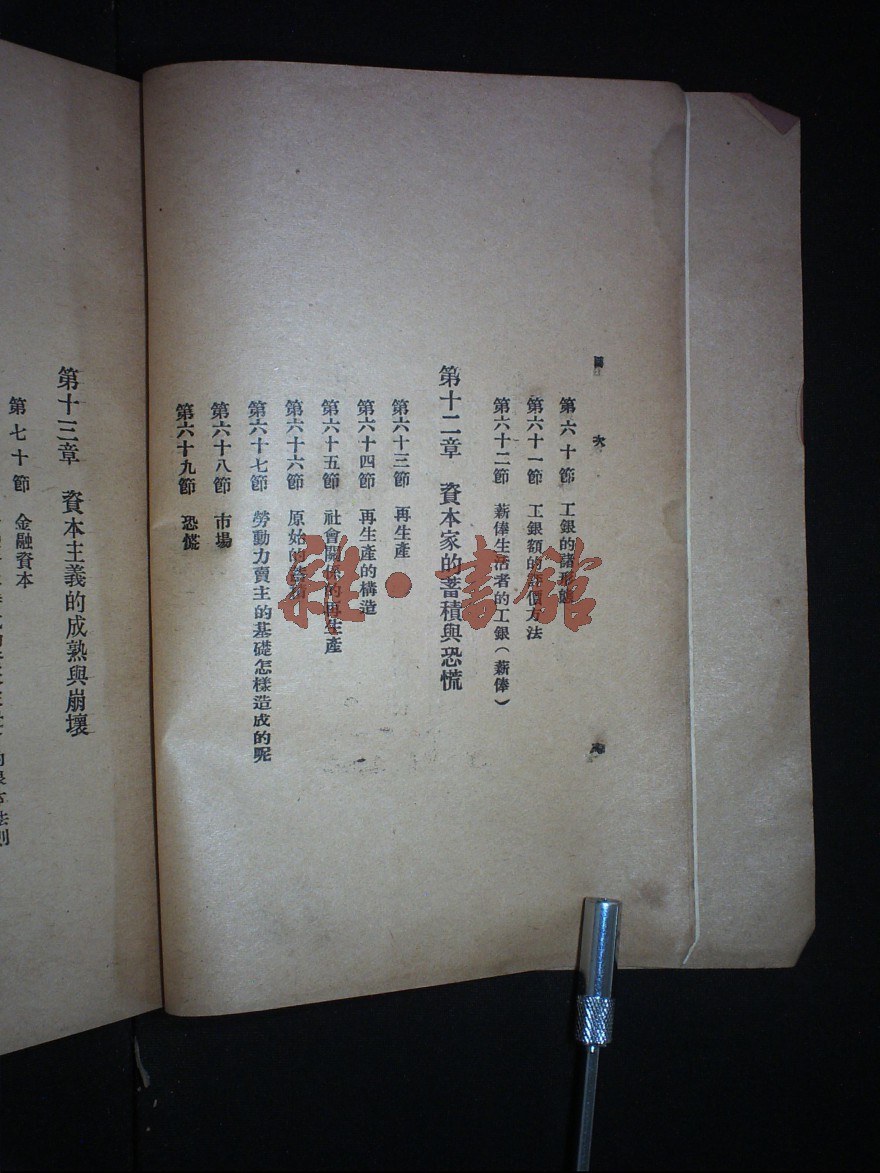 目次
第六十節 工銀的諸形態
第六十一節 工銀額的評價方法
第六十二節 薪俸生活者的工銀（薪俸）
第十二章 資本家的蓄積與恐慌
第六十三節 再生產
第六十四節 再生產的構造
第六十五節 社會關係的再生產
第六十六節 原始的蓄積
第六十七節 勞動力賣主的基礎怎樣造成的呢
第六十八節 市場
第六十九節 恐慌
第十三章 資本主義的成熟與崩壞
第七十節 金融資本
雜·書館